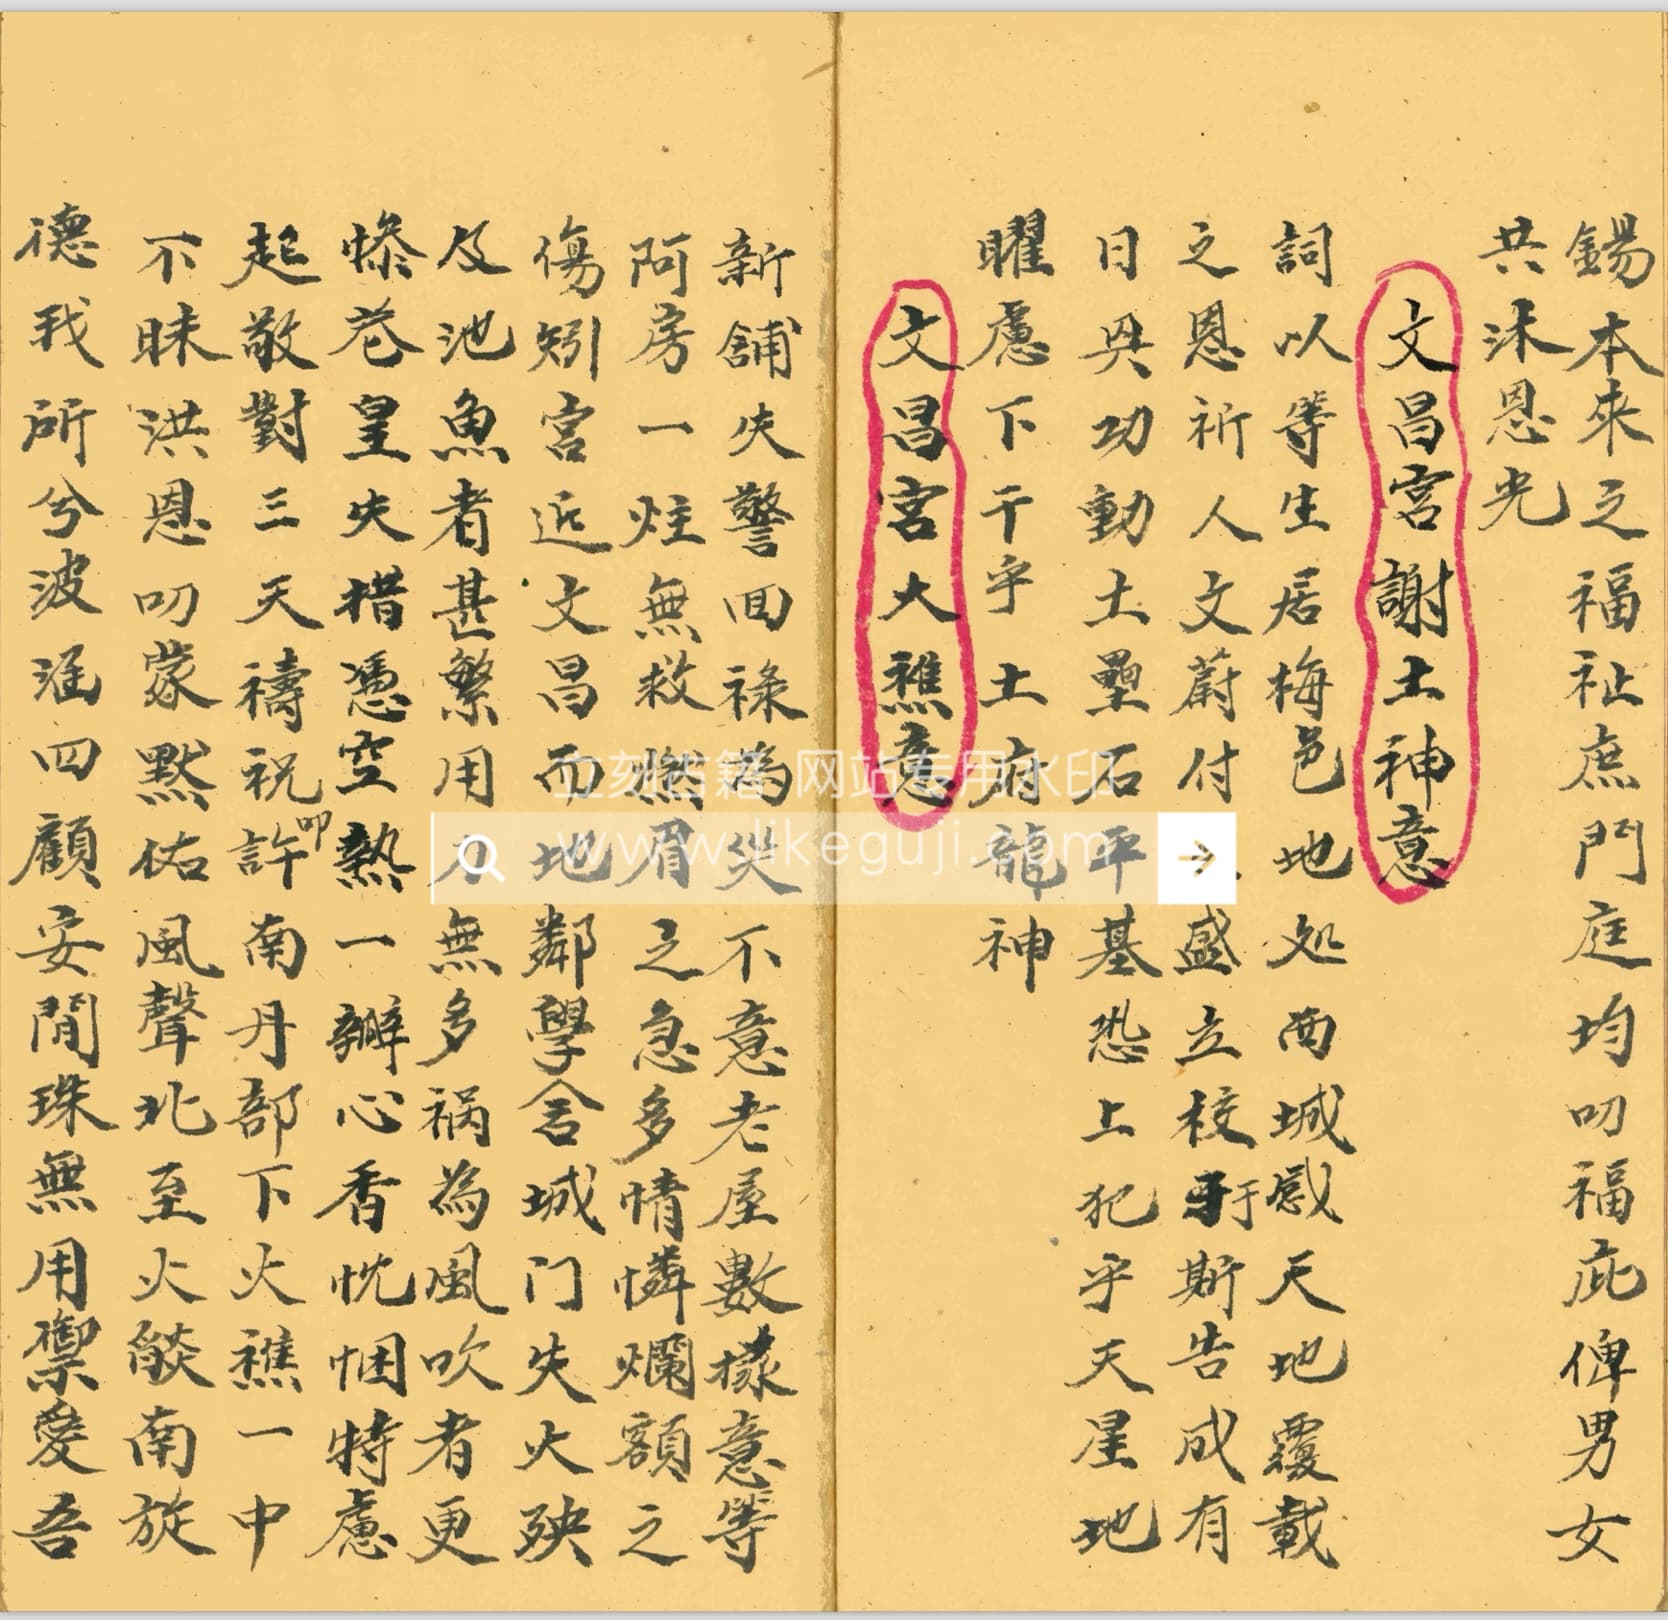 錫本來之福祉庶門庭均叨福庇俾男女
共沐恩光
文昌宮謝土神意
詞以等生居梅邑地処西城感天地覆載
之恩祈人文蔚付盛立校於斯告成有
日興功動土壘石平基恐上犯乎天星地
曜慮下干乎土府龍神
文昌宮大醮意
新舖失警回祿為災不意老屋數椽意等
阿房一炷無救燃眉之急多情憐爛額之
傷矧宮近文昌而地鄰學舍城门失火殃
及池魚者甚繁用力無多祸為風吹者更
慘巷皇失措憑空熱一瓣心香忱悃特慮
起敬對三天禱祝許叩南丹部下火醮一中
不昧洪恩叨蒙默佑風聲北至火燄南旋
德我所兮波涵四顧安閒珠無用禦愛吾
立刻古籍 网站专用水印
www.likeguji.com